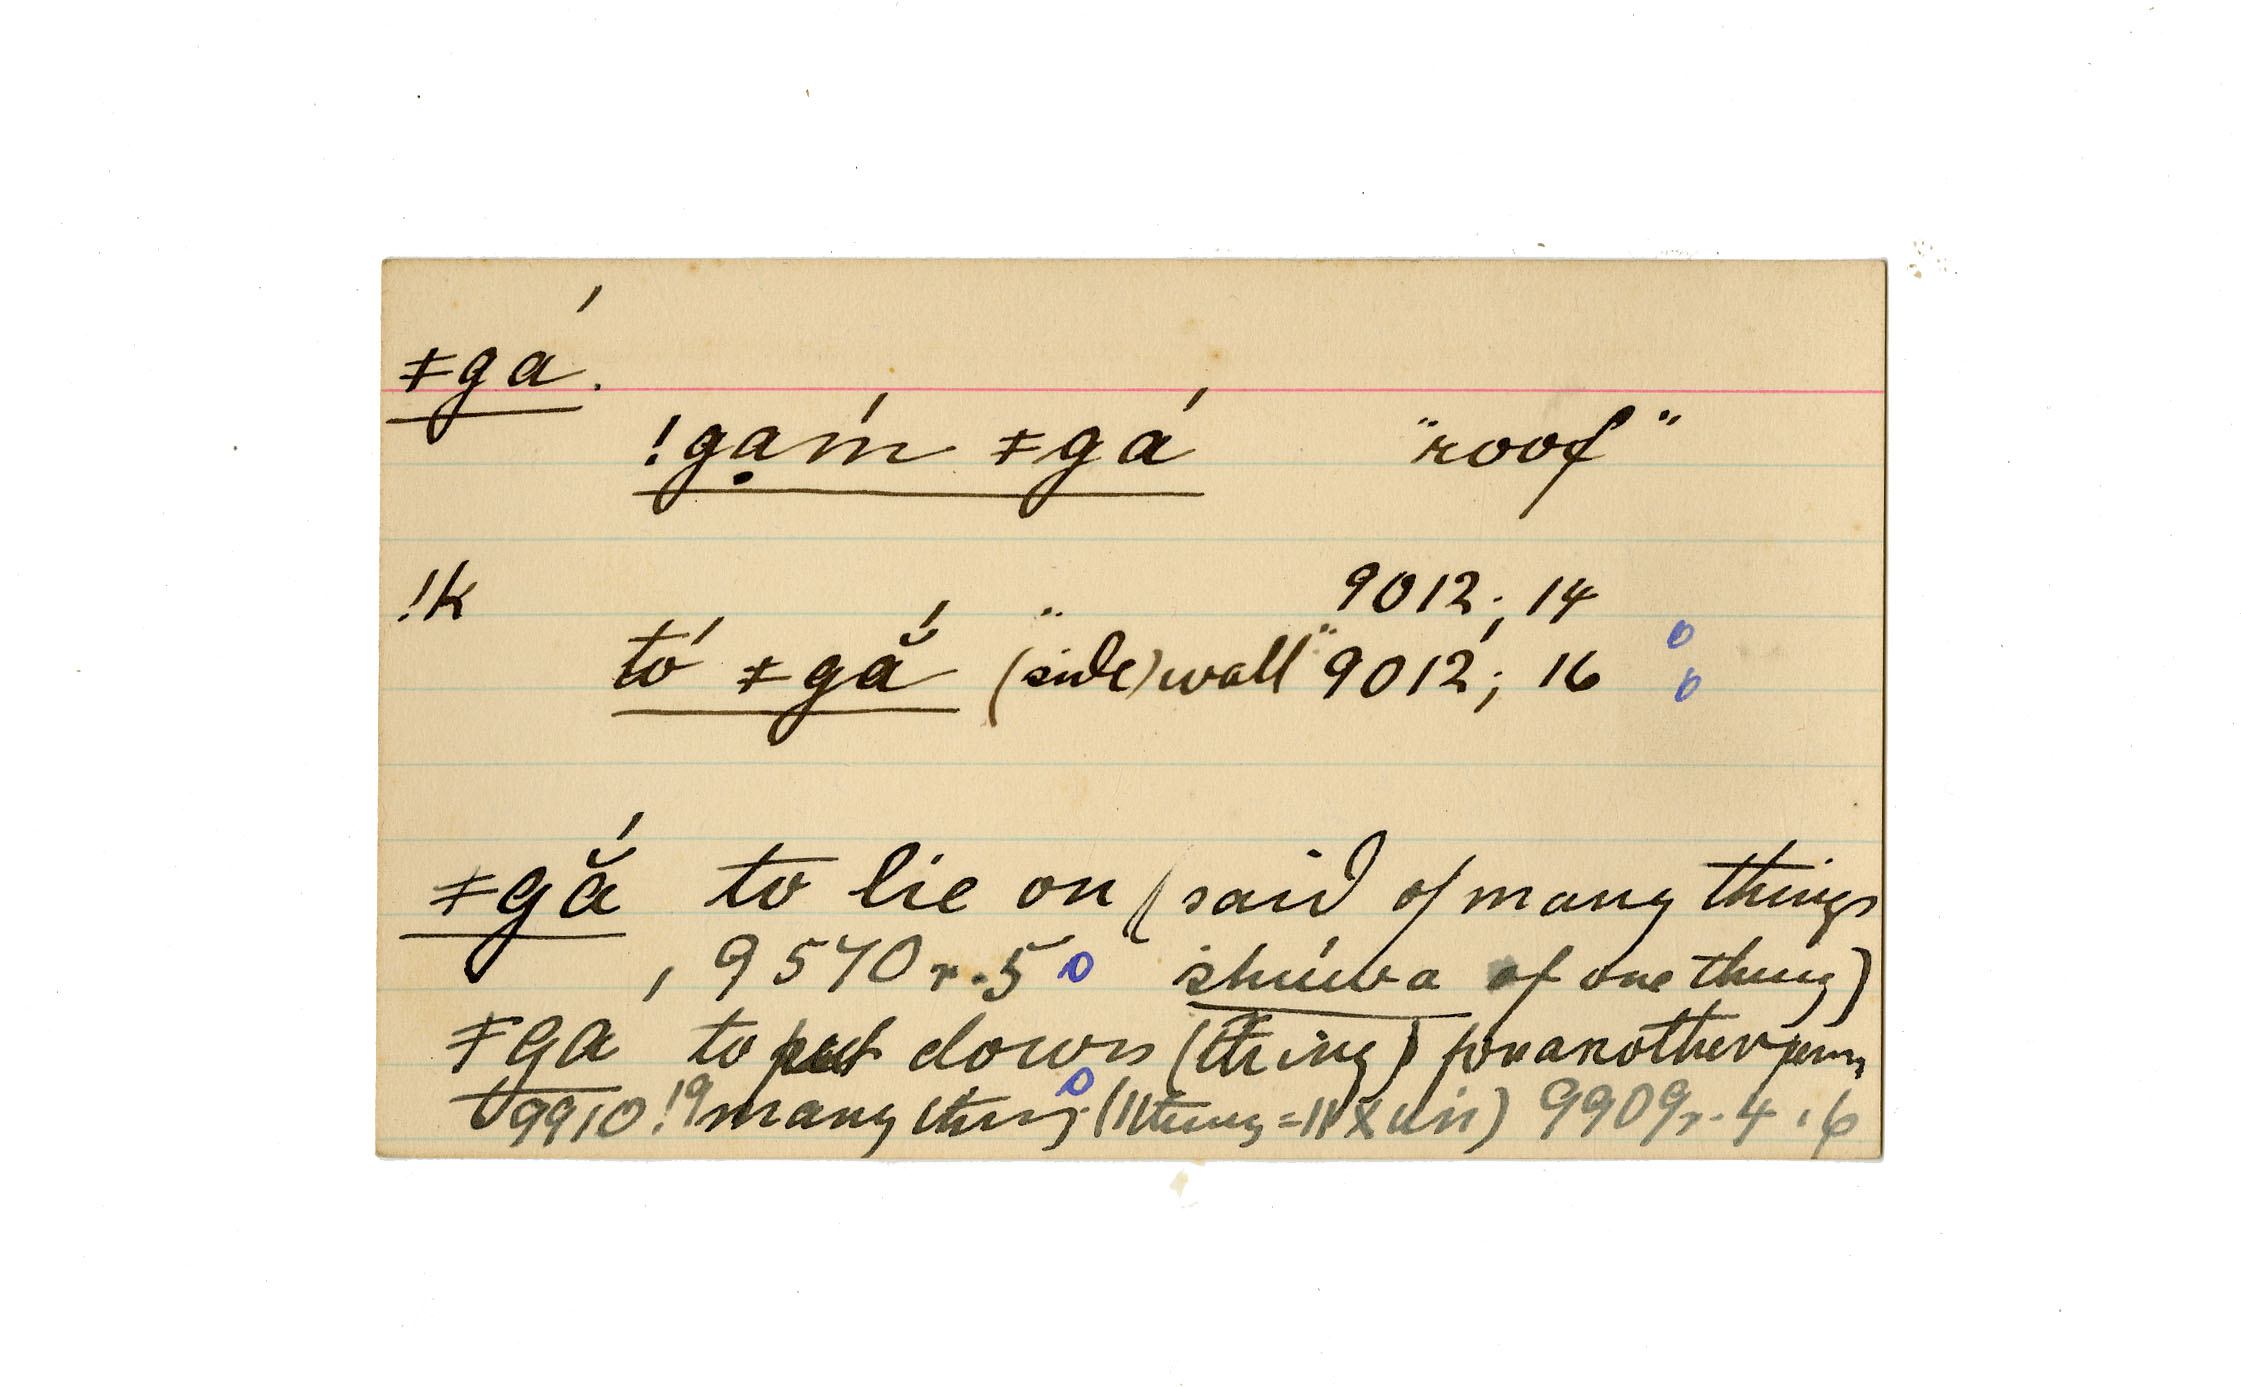 ǂgá.
!gạḿ ǂgá "roof"
!k 9012; 14
tó ǂgắ "(side) wall" 9012'; 16
ǂgắ to lie on (said of many things
, 9570 r. 5 shúwa of one thing)
ǂga to put down (thing) for another
9910 !9 many thing (1 thing = ǁxun) 9909 r. 4. 6